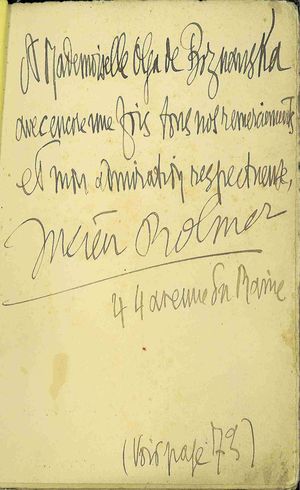 A Mademoiselle Olga de Boznanska
avec encore une fois tous nos remerciements
et mon admiration respectueuse,
Lucien Rolmer
44 avenue du Maine
(Voir page 79)